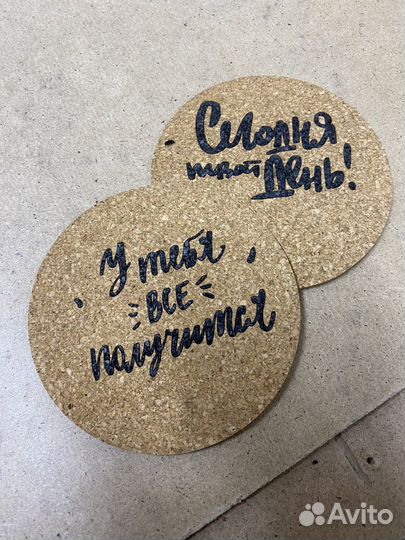 Сегодня
твой День!
У тебя
ВСЕ
получится
Avito